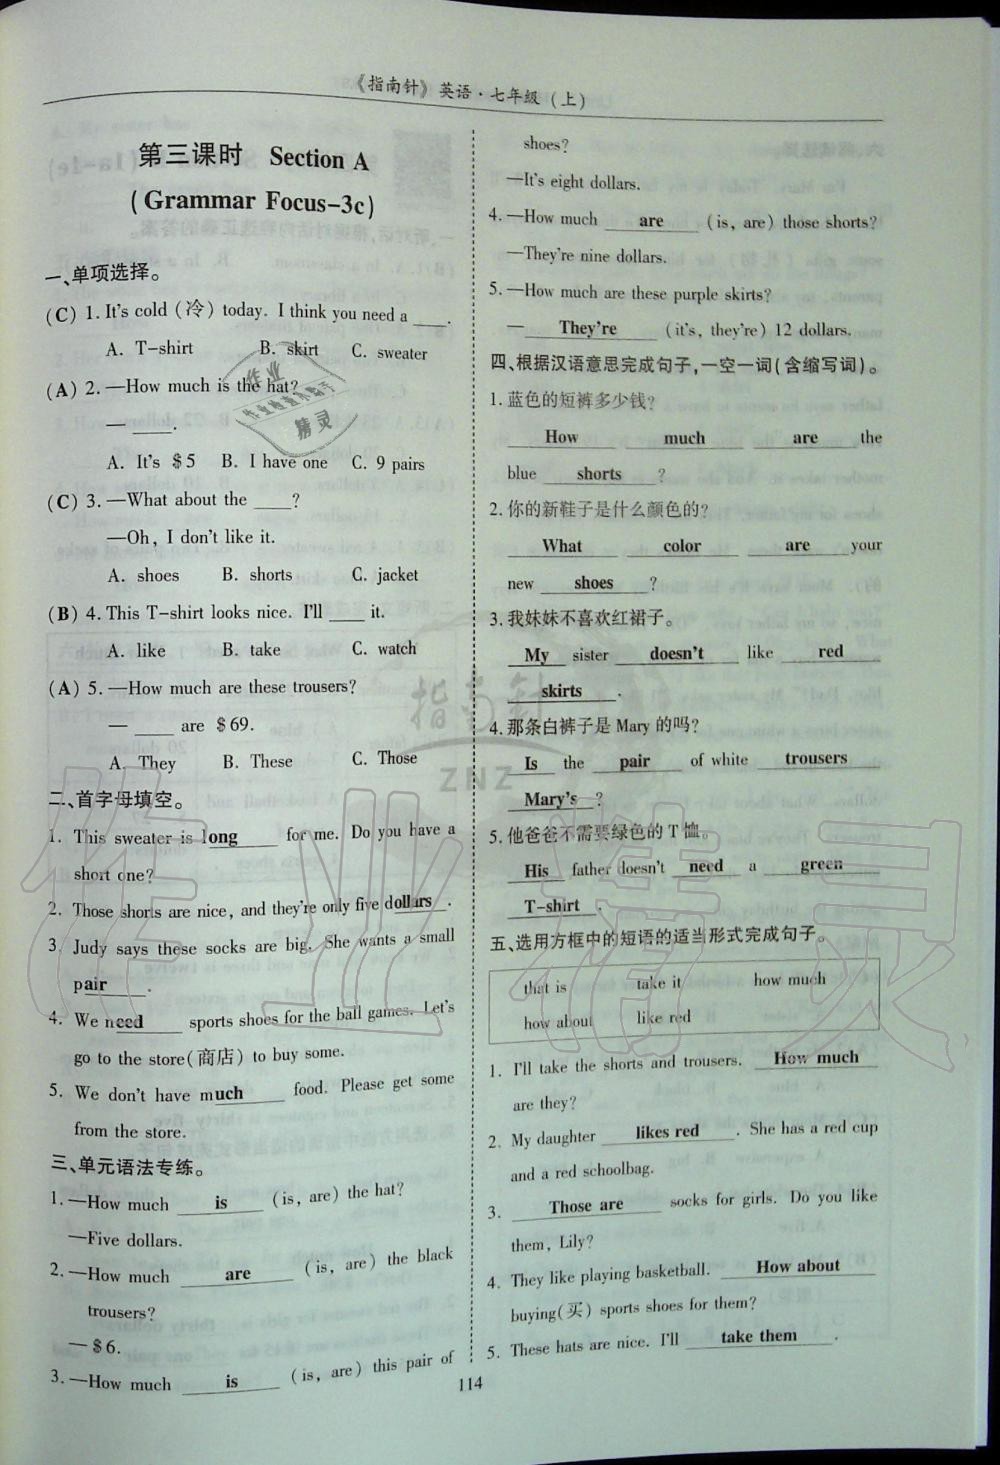 《指南针》英语·七年级(上)
第三课时 Section A
(Grammar Focus-3c)
一、单项选择。
(C) 1. It's cold (冷) today. I think you need a ____.
A. T-shirt B. skirt C. sweater
(A) 2. —How much is the hat?
— ____.
A. It's $5 B. I have one C. 9 pairs
(C) 3. —What about the ____?
—Oh, I don't like it.
A. shoes B. shorts C. jacket
(B) 4. This T-shirt looks nice. I'll ____ it.
A. like B. take C. watch
(A) 5. —How much are these trousers?
— ____ are $69.
A. They B. These C. Those
二、首字母填空。
1. This sweater is long for me. Do you have a
short one?
2. Those shorts are nice, and they're only five dollars.
3. Judy says these socks are big. She wants a small
pair.
4. We need sports shoes for the ball games. Let's
go to the store(商店) to buy some.
5. We don't have much food. Please get some
from the store.
三、单元语法专练。
1. —How much is (is, are) the hat?
—Five dollars.
2. —How much are (is, are) the black
trousers?
—$6.
3. —How much is (is, are) this pair of
shoes?
—It's eight dollars.
4. —How much are (is, are) those shorts?
—They're nine dollars.
5. —How much are these purple skirts?
— They're (it's, they're) 12 dollars.
四、根据汉语意思完成句子,一空一词(含缩写词)。
1. 蓝色的短裤多少钱?
How much are the
blue shorts ?
2. 你的新鞋子是什么颜色的?
What color are your
new shoes ?
3. 我妹妹不喜欢红裙子。
My sister doesn't like red
skirts .
4. 那条白裤子是 Mary 的吗?
Is the pair of white trousers
Mary's ?
5. 他爸爸不需要绿色的 T 恤。
His father doesn't need a green
T-shirt .
五、选用方框中的短语的适当形式完成句子。
that is take it how much
how about like red
1. I'll take the shorts and trousers. How much
are they?
2. My daughter likes red . She has a red cup
and a red schoolbag.
3. Those are socks for girls. Do you like
them, Lily?
4. They like playing basketball. How about
buying(买) sports shoes for them?
5. These hats are nice. I'll take them .
114
作业
作业检查小帮手
精灵
指南针
ZNZ
作业精灵